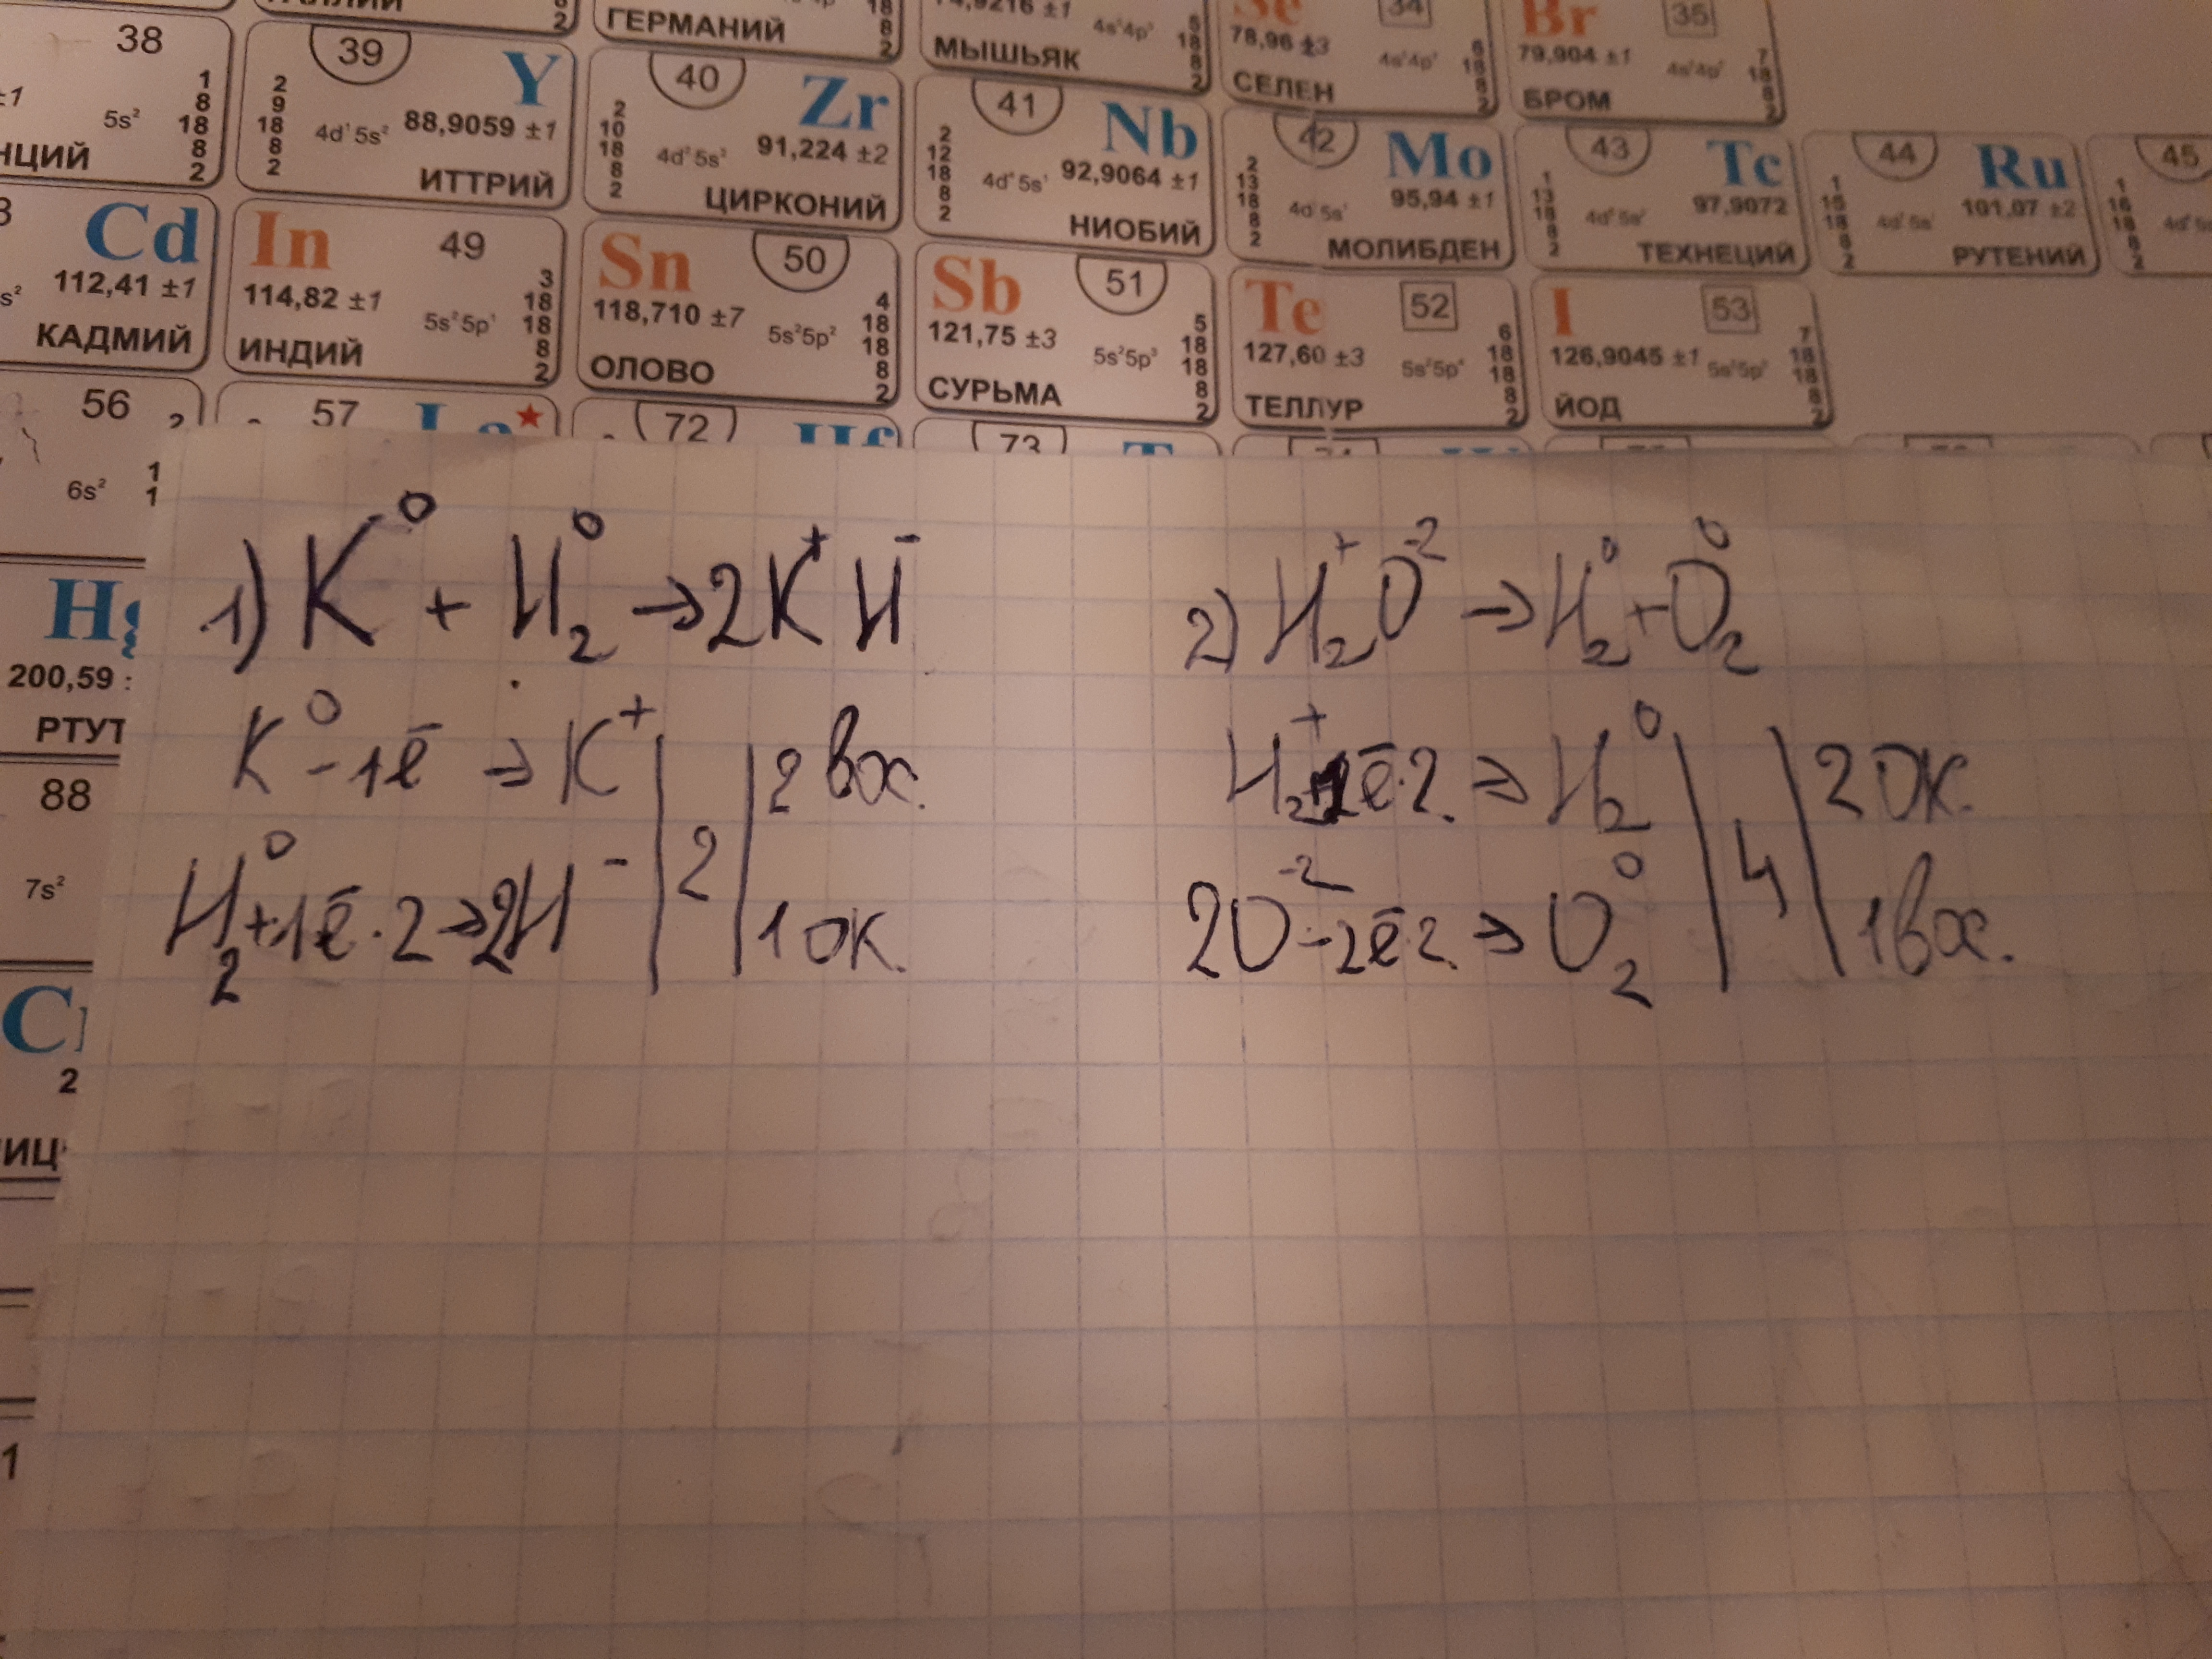 ГЕРМАНИЙ 18 8 2
74,9216 ±1 4s²4p³ 5 18 8 2
МЫШЬЯК
Se 34
78,96 ±3 4s²4p⁴ 6 18 8 2
СЕЛЕН
Br 35
79,904 ±1 4s²4p⁵ 7 18 8 2
БРОМ
38
±1 5s² 1 8 18 8 2
НЦИЙ
39 Y
2 9 18 8 2 4d¹5s² 88,9059 ±1
ИТТРИЙ
40 Zr
2 10 18 8 2 4d²5s² 91,224 ±2
ЦИРКОНИЙ
41 Nb
2 12 18 8 2 4d⁴5s¹ 92,9064 ±1
НИОБИЙ
42 Mo
2 13 18 8 2 4d⁵5s¹ 95,94 ±1
МОЛИБДЕН
43 Tc
1 13 18 8 2 4d⁵5s² 97,9072
ТЕХНЕЦИЙ
44 Ru
1 15 18 8 2 4d⁷5s¹ 101,07 ±2
РУТЕНИЙ
45
1 16 18 8 2
Cd
112,41 ±1
КАДМИЙ
In 49
114,82 ±1 5s²5p¹ 3 18 18 8 2
ИНДИЙ
Sn 50
118,710 ±7 5s²5p² 4 18 18 8 2
ОЛОВО
Sb 51
121,75 ±3 5s²5p³ 5 18 18 8 2
СУРЬМА
Te 52
127,60 ±3 5s²5p⁴ 6 18 18 8 2
ТЕЛЛУР
I 53
126,9045 ±1 5s²5p⁵ 7 18 18 8 2
ЙОД
56 2
6s²
57 La
72 Hf
73
Hg
200,59
РТУТ
88
7s²
2
1
1) K⁰ + H₂⁰ → 2K⁺H⁻
K⁰ -1ē → K⁺ | 2 | 2 вос.
H₂⁰ +1ē·2 → 2H⁻ | | 1 ок.
2) H₂⁺O⁻² → H₂⁰ + O₂⁰
H₂⁺ +1ē·2 → H₂⁰ | 4 | 2 ок.
2O⁻² -2ē·2 → O₂⁰ | | 1 вос.